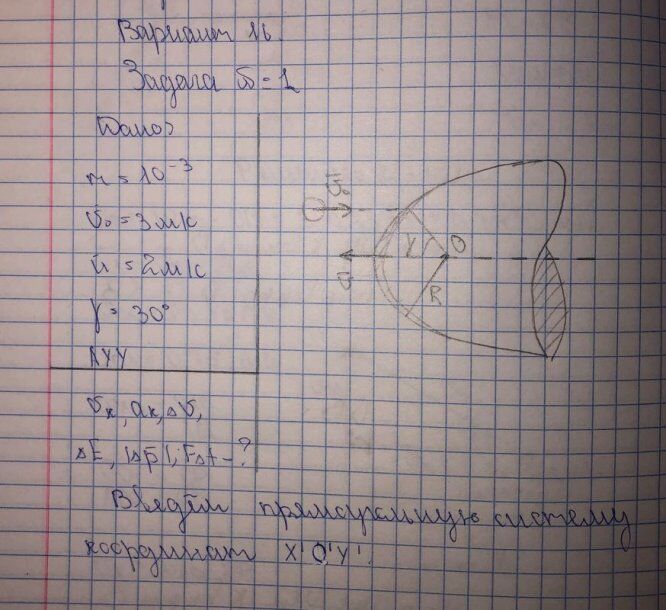 Вариант 16.
Задача №=1
Дано:
m = 10⁻³
υ₀ = 3 м/с
u = 2 м/с
γ = 30°
АУУ
υк, aк, Δυ,
ΔE, |Δp̄|, FΔt – ?
ῡ₀
γ
O
ῡ
R
Введём прямоугольную систему
координат X'O'Y'.